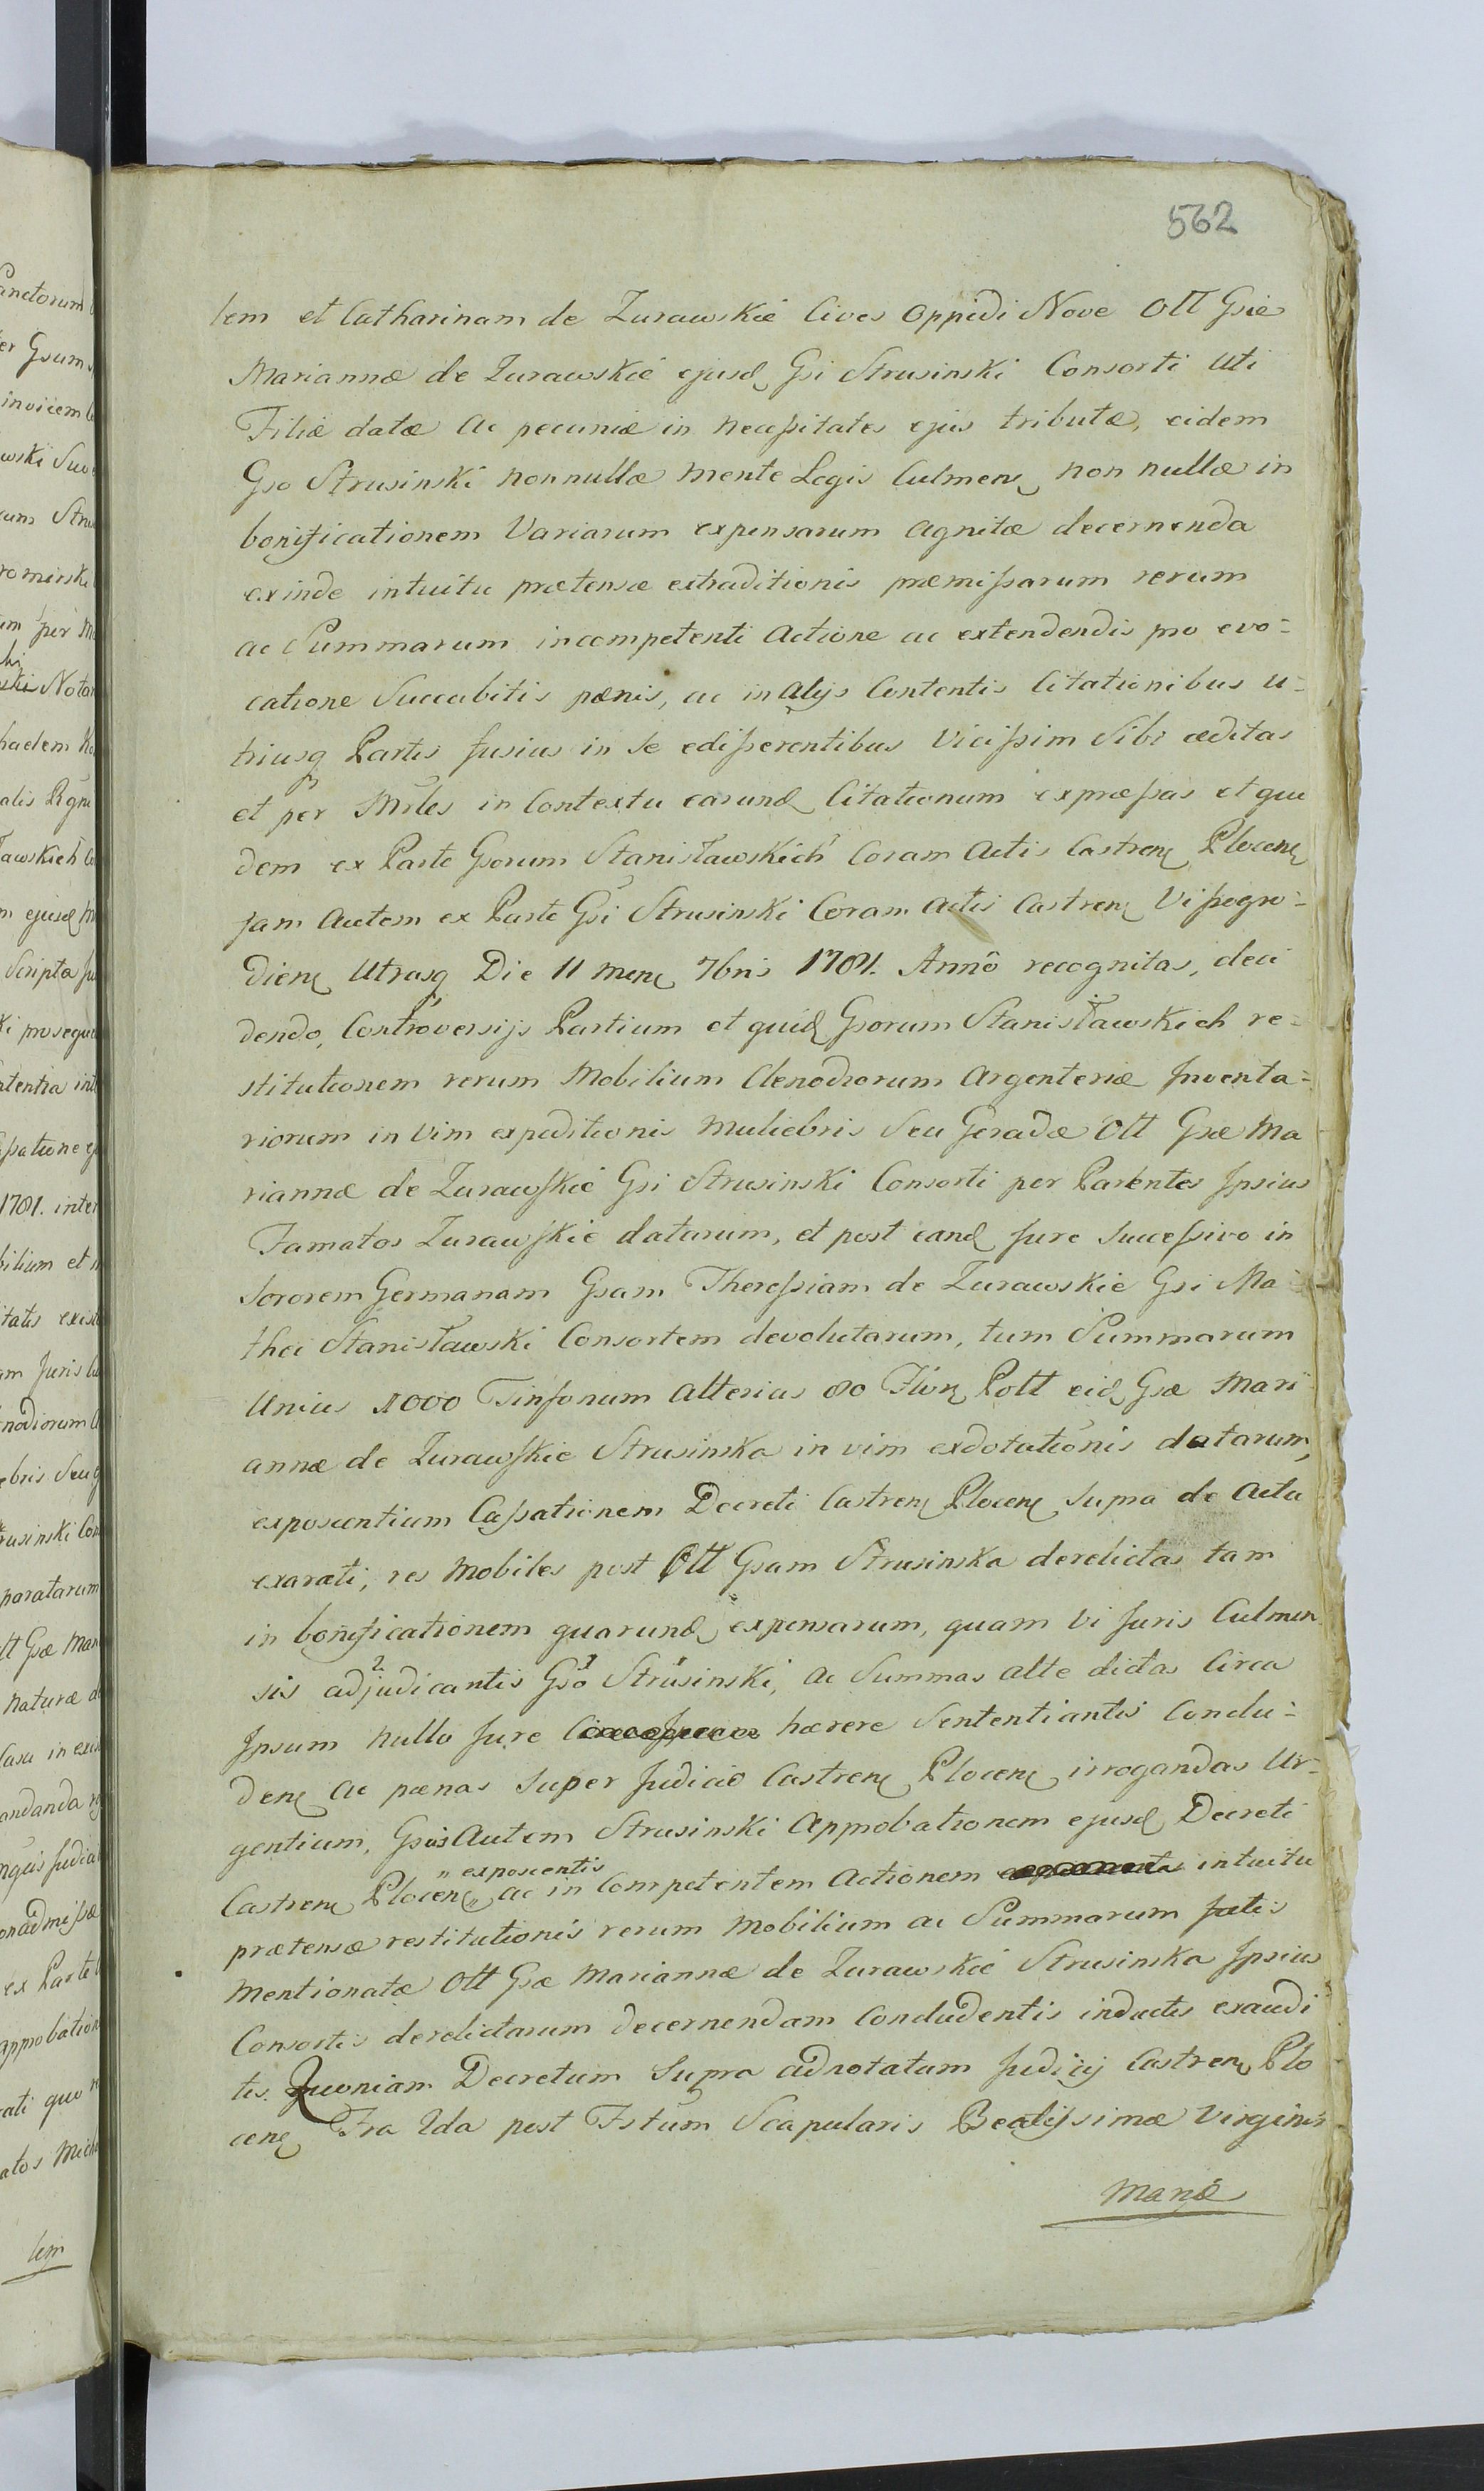 562
lem et Catharinam de Zurawskie Cives Oppidi Nove Olt Gsæ
Mariannæ de Zurawskie ejusd Gsi Strusinski Consorti uti
Filiæ datæ ac pecuniæ in necessitates ejus tributæ, eidem
Gso Strusinski nonnullæ mente Legis Culmens non nullæ in
bonificationem Variarum expensarum agnitæ decernenda
exinde intuitu prætensæ extraditionis præmissarum rerum
ac Summarum incompetenti Actione ac extendendis pro evo=
catione Succubitis pænis, ac in alijs Contentis Citationibus u=
triusq Partis fusius in se edisserentibus Vicissim Sibi æditas
et per Mrles in Contextu earund Citationum expræssas et qui
dem ex Parte Gsorum Stanisławskich Coram Actis Castren Plocen
Jam Autem ex Parte Gsi Strusinski Coram Actis Castren Vissogro=
dien Utrasq Die 11 men 7bris 1781. Anno recognitas, deci
dendo, Controversijs Partium et quid Gsorum Stanisławskich re=
stitutionem rerum Mobilium Clenodiorum Argenteriæ Inventa=
riorum in Vim expeditionis Muliebris Seu Geradæ Olt Gsæ Ma
riannæ de Zurawskie Gsi Strusinski Consorti per Parentes Ipsius
Famatos Zurawskie datarum, et post eand Jure Successivo in
Sororem Germanam Gsam Theressiam de Zurawskie Gsi Ma
thei Stanisławski Consortem devolutarum, tum Summarum
Unius 1000 Tinfonum Alterius 80 Flor Poll eid Gsæ Mari
annæ de Zurawskie Strusinska in vim exdotationis datarum,
exposcentium Cassationem Decreti Castren Plocen Supra de Actu
exarati, res Mobiles post Olt Gsam Strusinska derelictas tam
in bonificationem quarund expensarum, quam Vi Juris Culmen
sis adjudicantis Gso Strusinski, ac Summas alte dictas Circa
Ipsum nullo Jure hærere Sententiantis Conclu=
den ac pænas Super Judicio Castren Plocen irrogandas Ur=
gentium, Gsi Autem Strusinski Approbationem ejusd Decreti
" exposcentis
Castren Plocen " ac in Competentem Actionem intuitu
prætensæ restitutionis rerum Mobilium ac Summarum
Mentionatæ Olt Gsæ Mariannæ de Zurawskie Strusinska Ipsius
Consortis derelictarum decernendam Concludentis inductis exaudi
tis. Quoniam Decretum Supra adnotatum Judicij Castren Plo
cen Fra 2da post Fstum Scapularis Beatissimæ Virginis
Mariæ